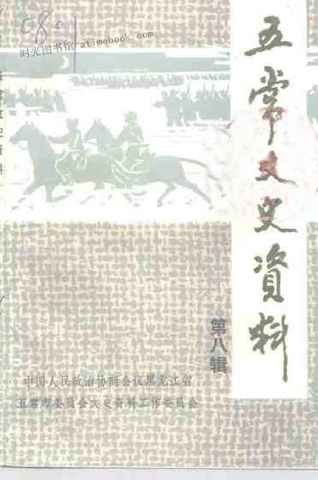 五常文史資料
第八辑
中国人民政治协商会议黑龙江省
五常市委员会文史资料工作委员会